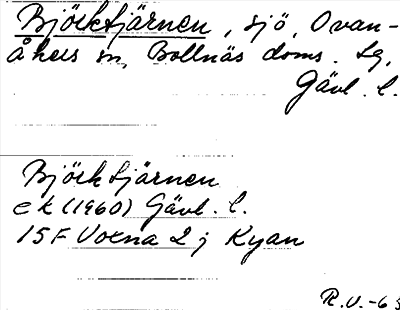 Björktjärnen, sjö, Ovan-
åkers sn, Bollnäs doms. sg,
Gävl. l.
Björktjärnen
ek (1960) Gävl. l.
15F Voxna 2 j Kyan
R.V.-63